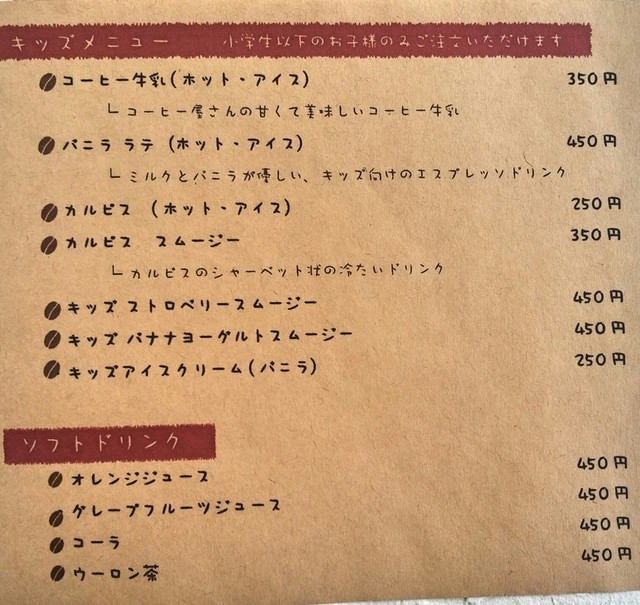 キッズメニュー 小学生以下のお子様のみご注文いただけます
コーヒー牛乳(ホット・アイス) 350円
└コーヒー屋さんの甘くて美味しいコーヒー牛乳
バニラ ラテ (ホット・アイス) 450円
└ミルクとバニラが優しい、キッズ向けのエスプレッソドリンク
カルピス (ホット・アイス) 250円
カルピス スムージー 350円
└カルピスのシャーベット状の冷たいドリンク
キッズ ストロベリースムージー 450円
キッズ バナナヨーグルトスムージー 450円
キッズアイスクリーム(バニラ) 250円
ソフトドリンク
オレンジジュース 450円
グレープフルーツジュース 450円
コーラ 450円
ウーロン茶 450円